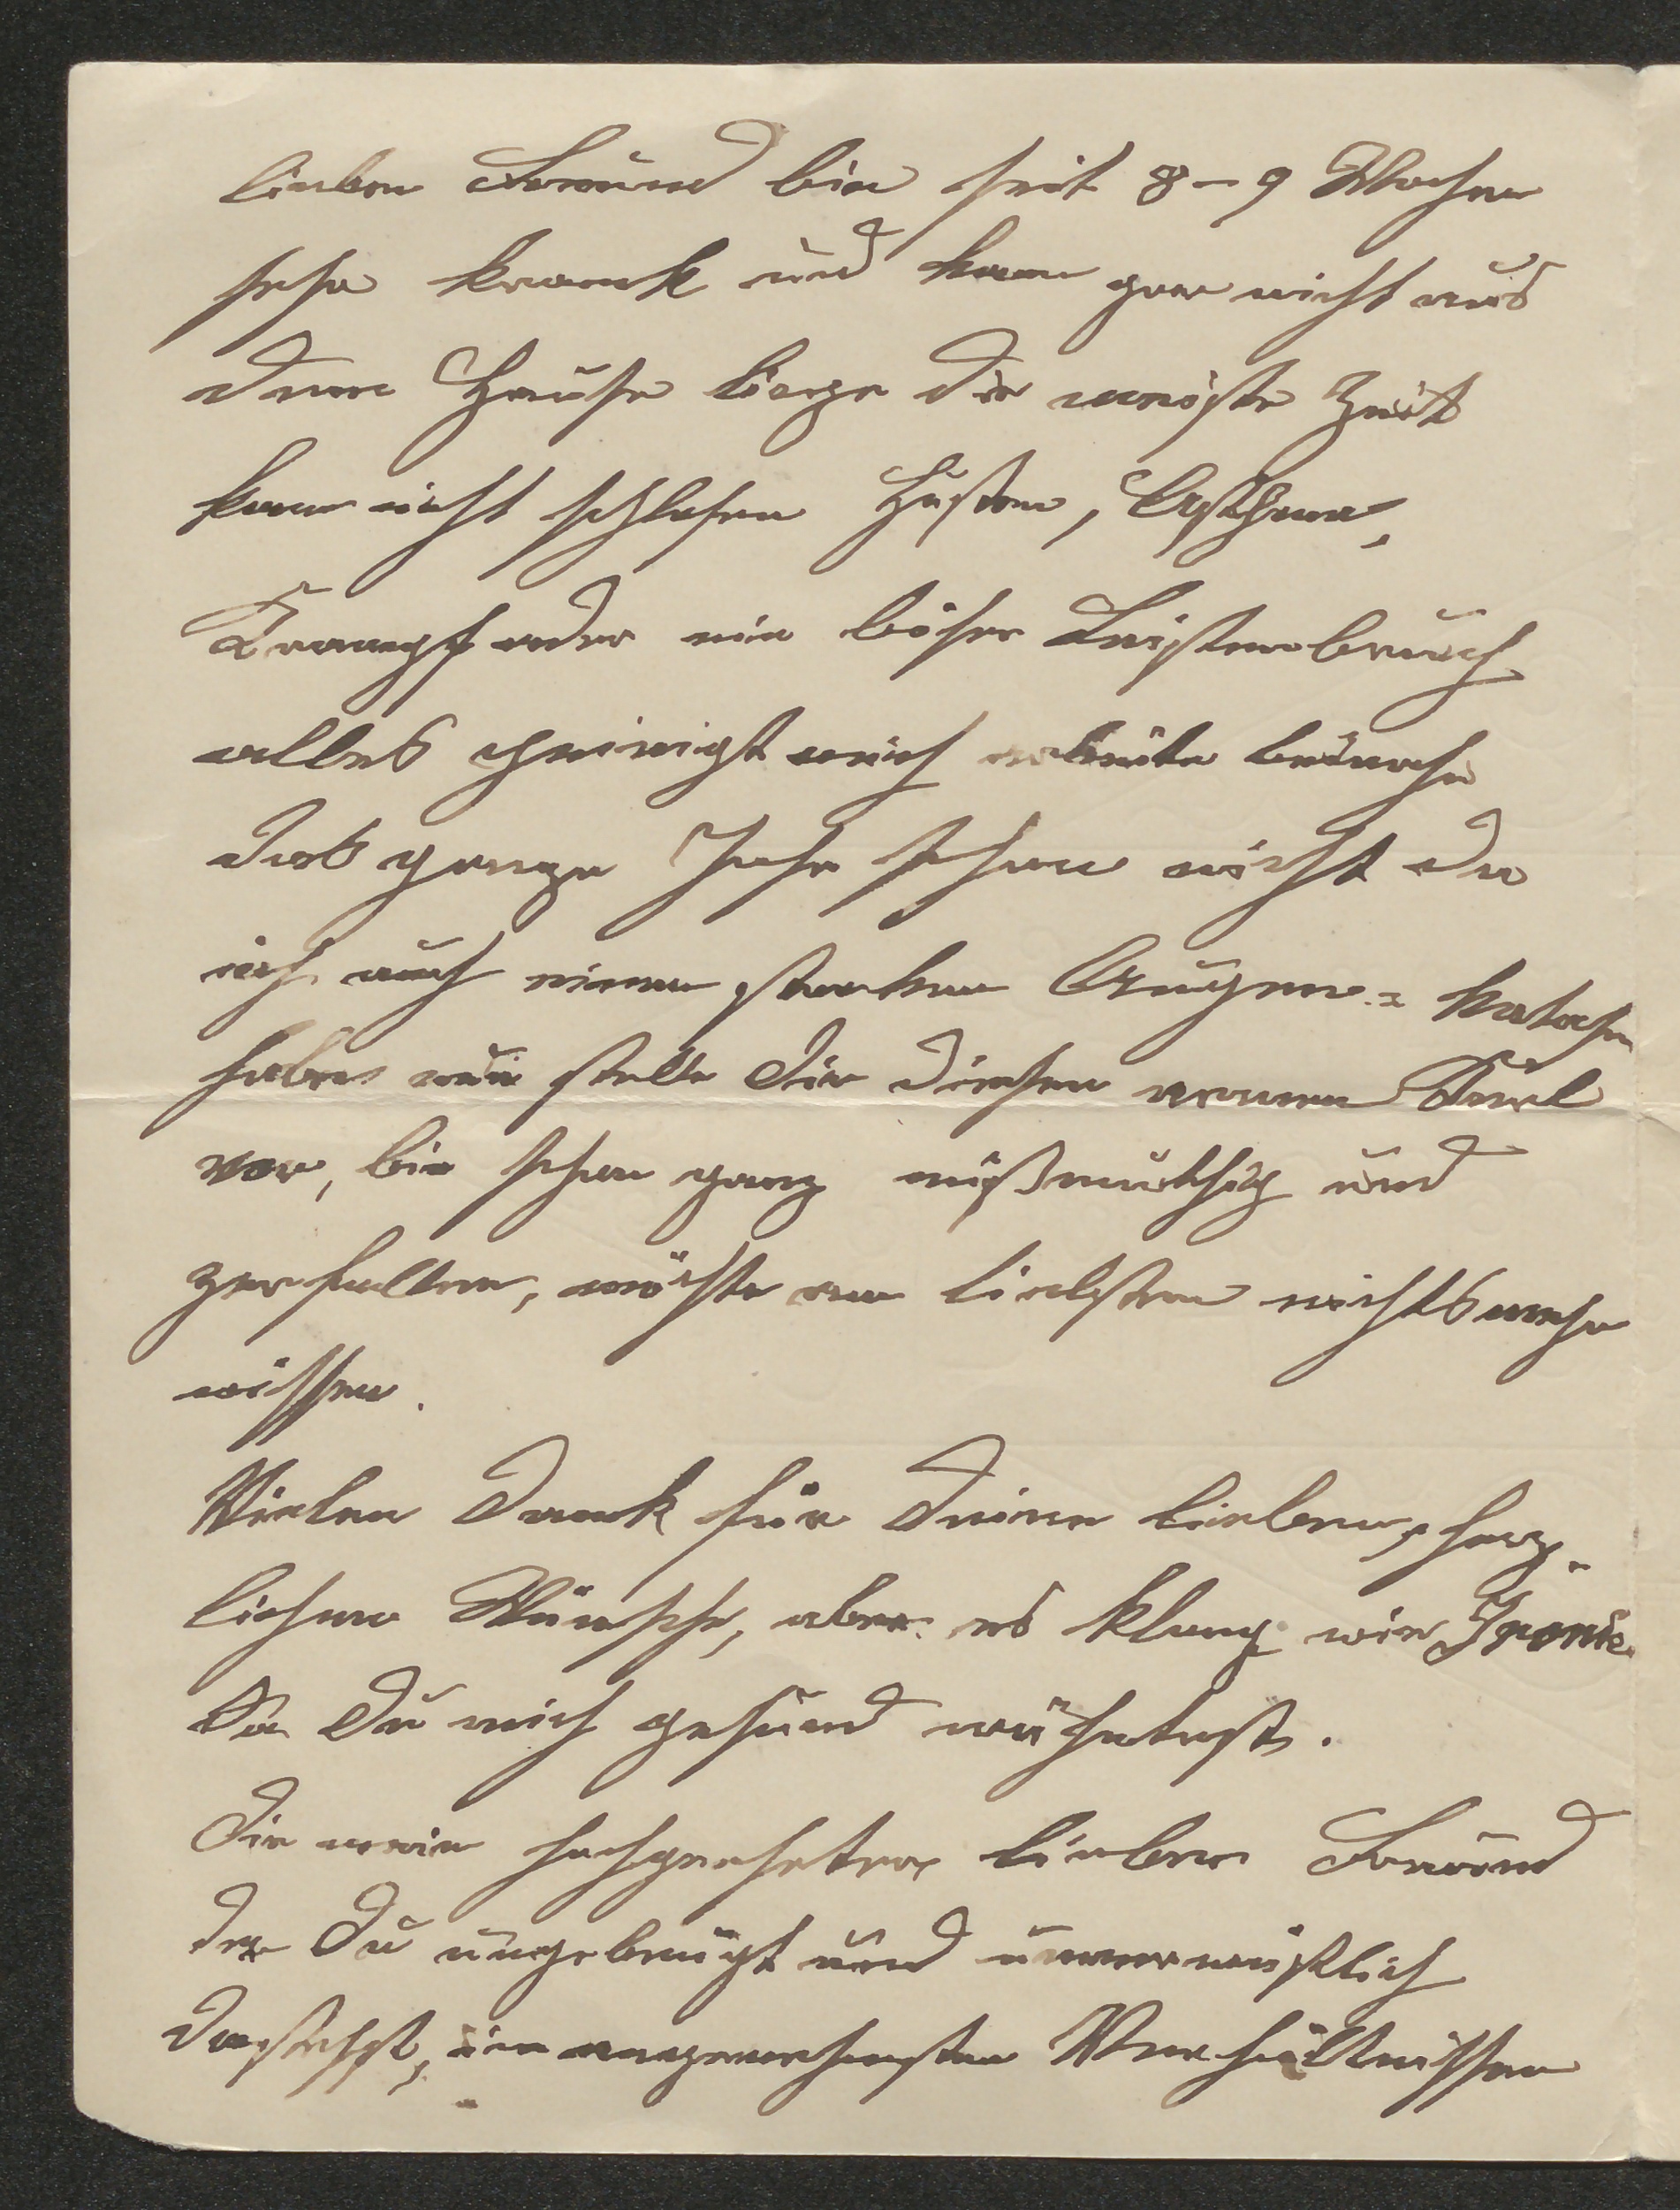 lieber Freund bin seit 8–9 Wochen
sehr krank und kann gar nicht aus
dem Hause liege die meiste Zeit
kann nicht schlafen Husten, Asthma,
Krampfader ein böser Leistenbruch
alles peinigt mich arbeite beinahe
das ganze Jahr schon nicht da
ich auch einen starken Augen = Katahr
habe nun stelle Dir diesen armen Kerl
vor, bin schon ganz mißmuthig und
zerfallen, möchte am liebsten nichts mehr
wissen.
Vielen Dank für Deine lieben, herz-
lichen Wünsche, aber es klang wie Ironie
Da Du mich gesund wähntest.
Dir mein hochgeehrter lieber Freund
der Du ungebeugt und unverwüstlich
dastehst, in angenehmsten Verhältnissen